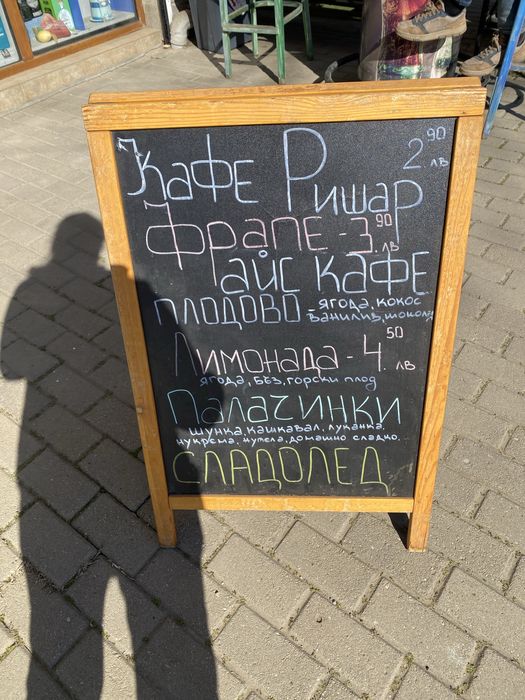 Кафе Ришар 2.90 лв
Фрапе - 3.90 лв
Айс кафе
ПЛОДОВО - ягода, кокос
ванилия, шокола
Лимонада - 4.50 лв
ягода, без, горски плод
Палачинки
шунка, кашкавал, луканка,
цукрема, нутела, домашно сладко.
СЛАДОЛЕД